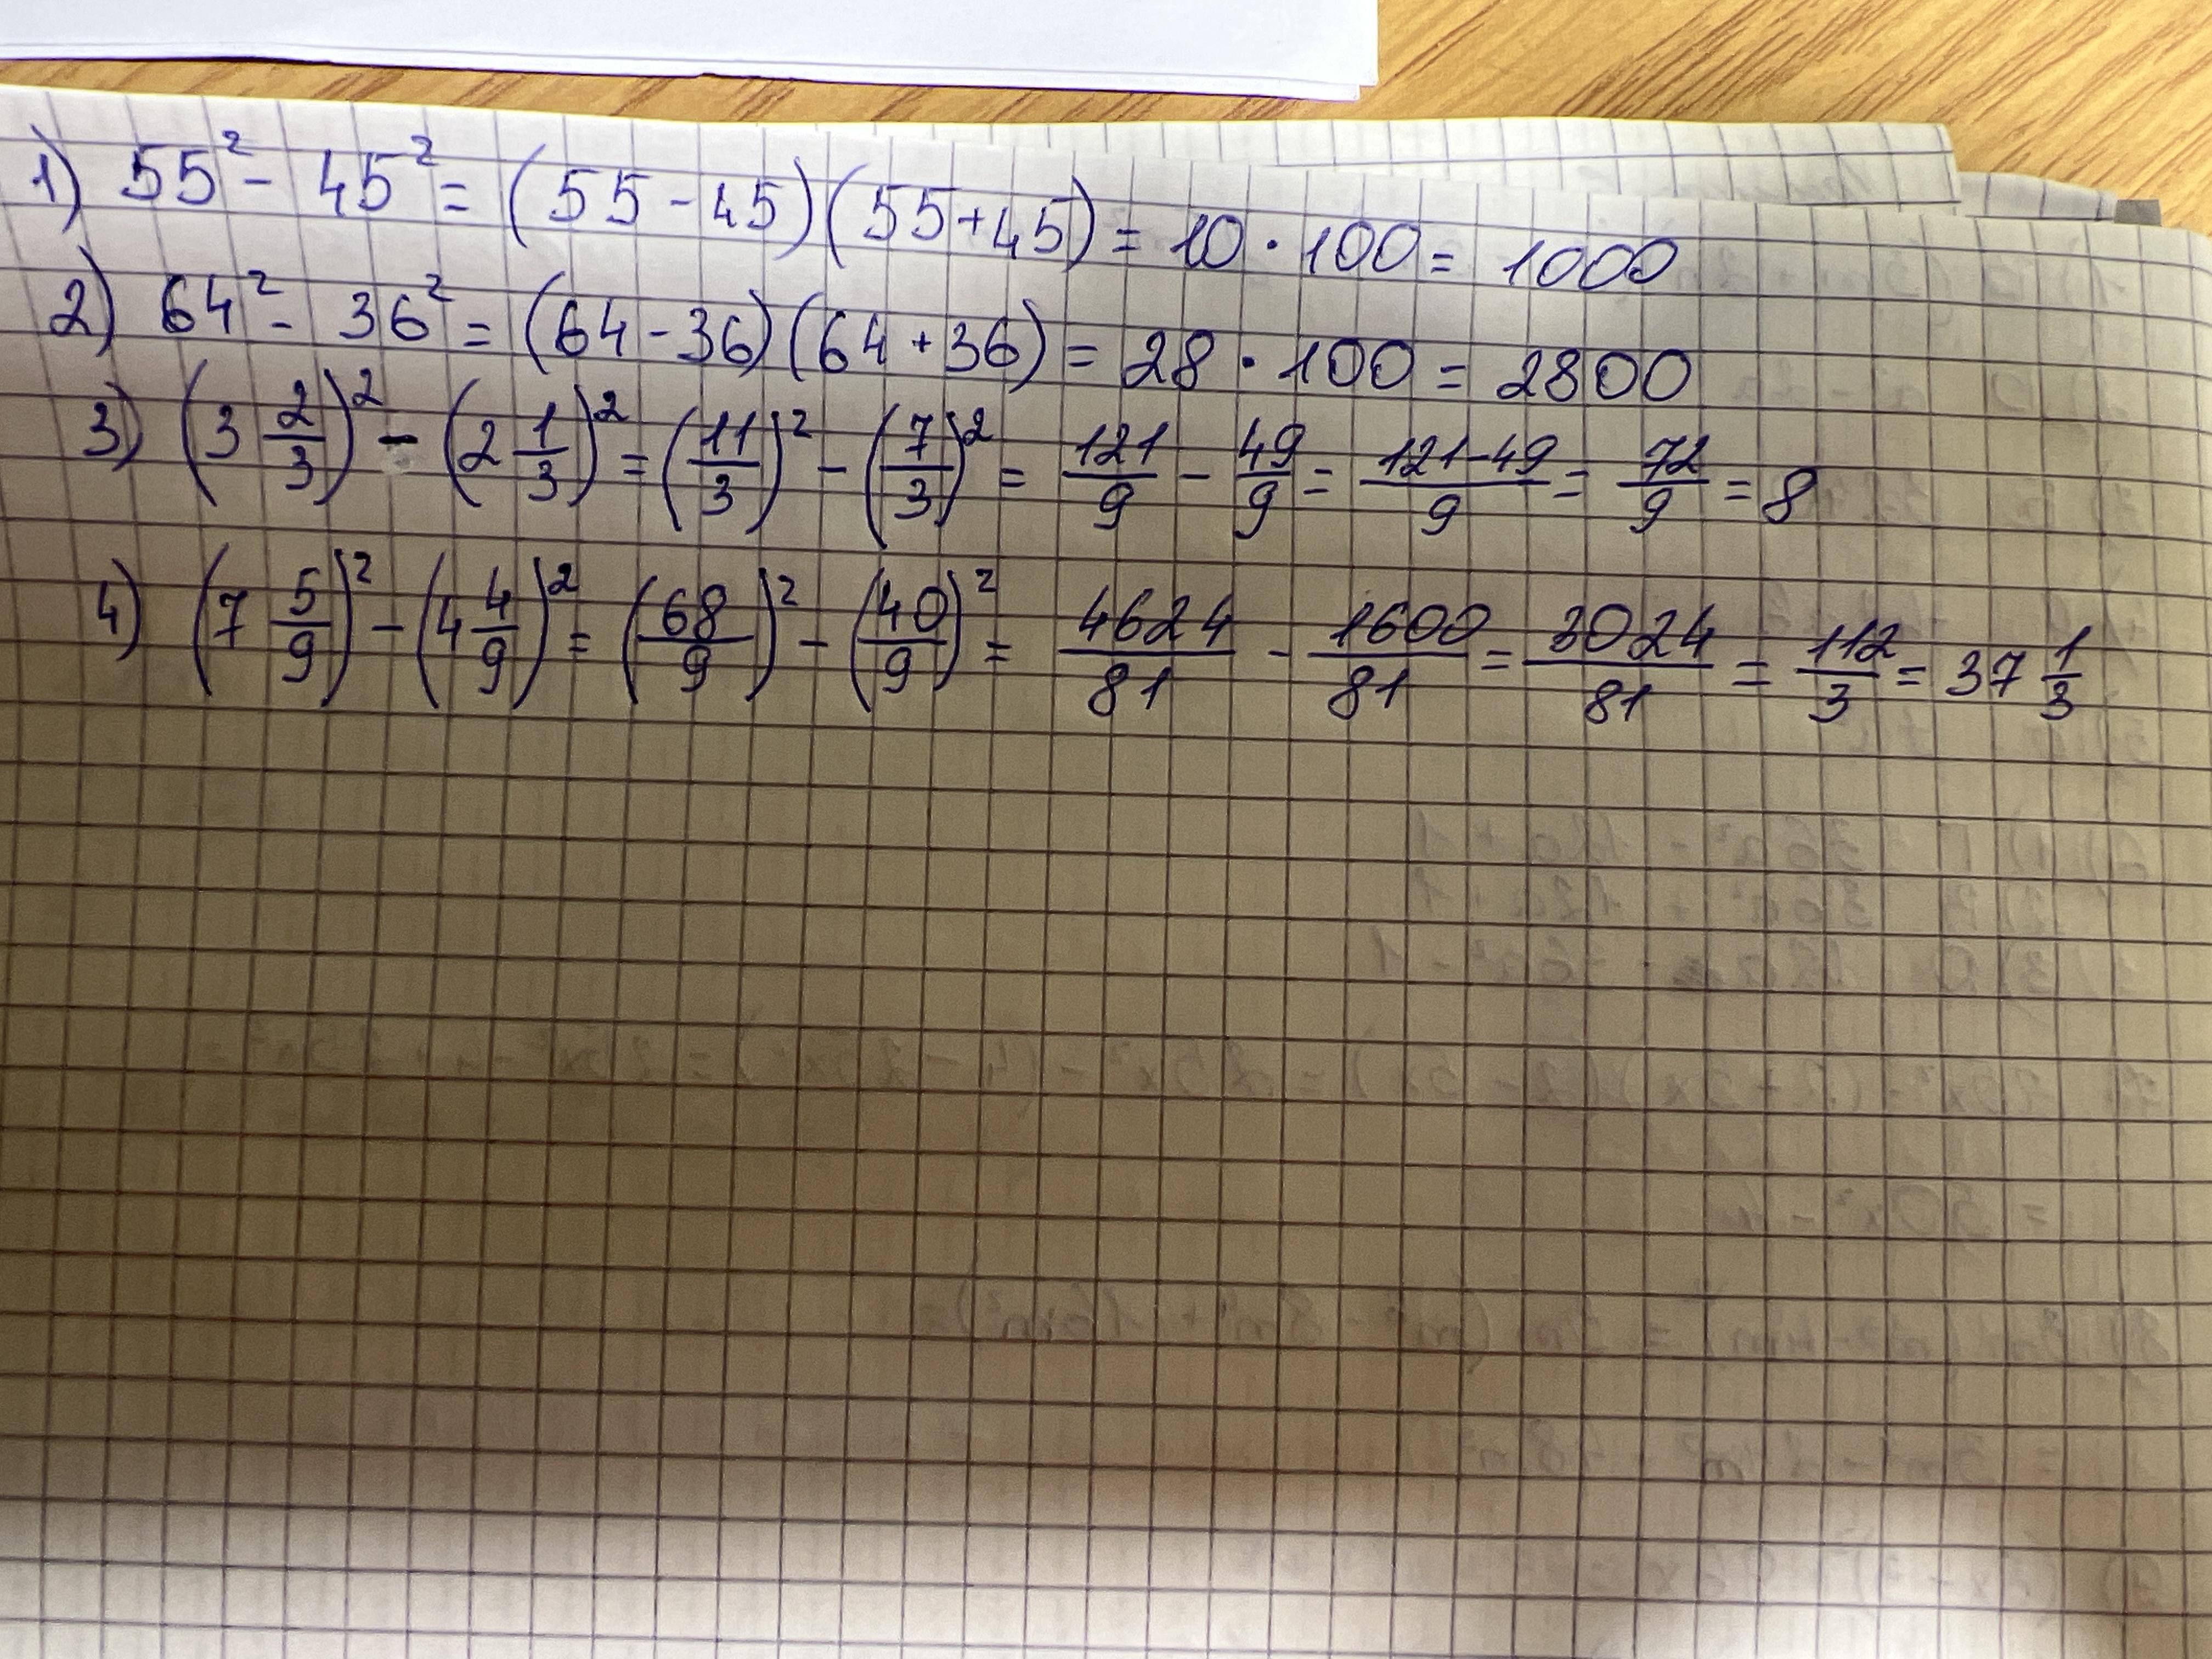 1) 55² - 45² = (55 - 45)(55 + 45) = 10 · 100 = 1000
2) 64² - 36² = (64 - 36)(64 + 36) = 28 · 100 = 2800
3) (3 2/3)² - (2 1/3)² = (11/3)² - (7/3)² = 121/9 - 49/9 = (121-49)/9 = 72/9 = 8
4) (7 5/9)² - (4 4/9)² = (68/9)² - (40/9)² = 4624/81 - 1600/81 = 3024/81 = 112/3 = 37 1/3